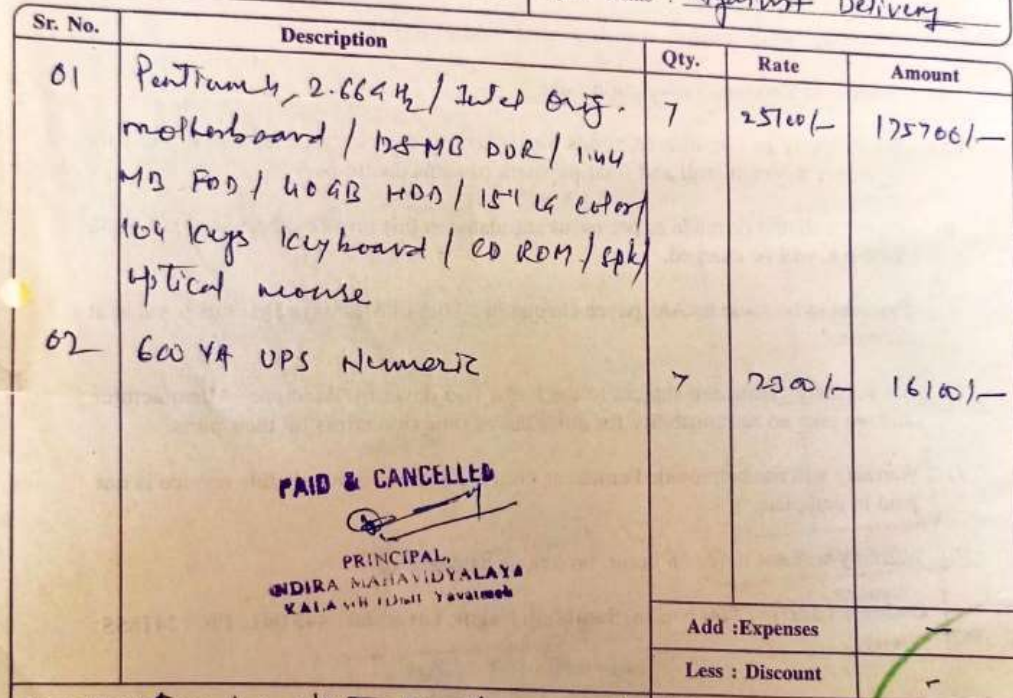 Against Delivery
Sr. No. Description Qty. Rate Amount
01 Pentium 4, 2.66 GHz / Intel Orig. 7 25100/- 175700/-
motherboard / 128 MB DDR / 1.44
MB FDD / 40 GB HDD / 15" LG color/
104 keys keyboard / CD ROM / spk/
optical mouse
02 600 VA UPS Numeric 7 2300/- 16100/-
PAID & CANCELLED
PRINCIPAL,
INDIRA MAHAVIDYALAYA
Add :Expenses -
Less : Discount -